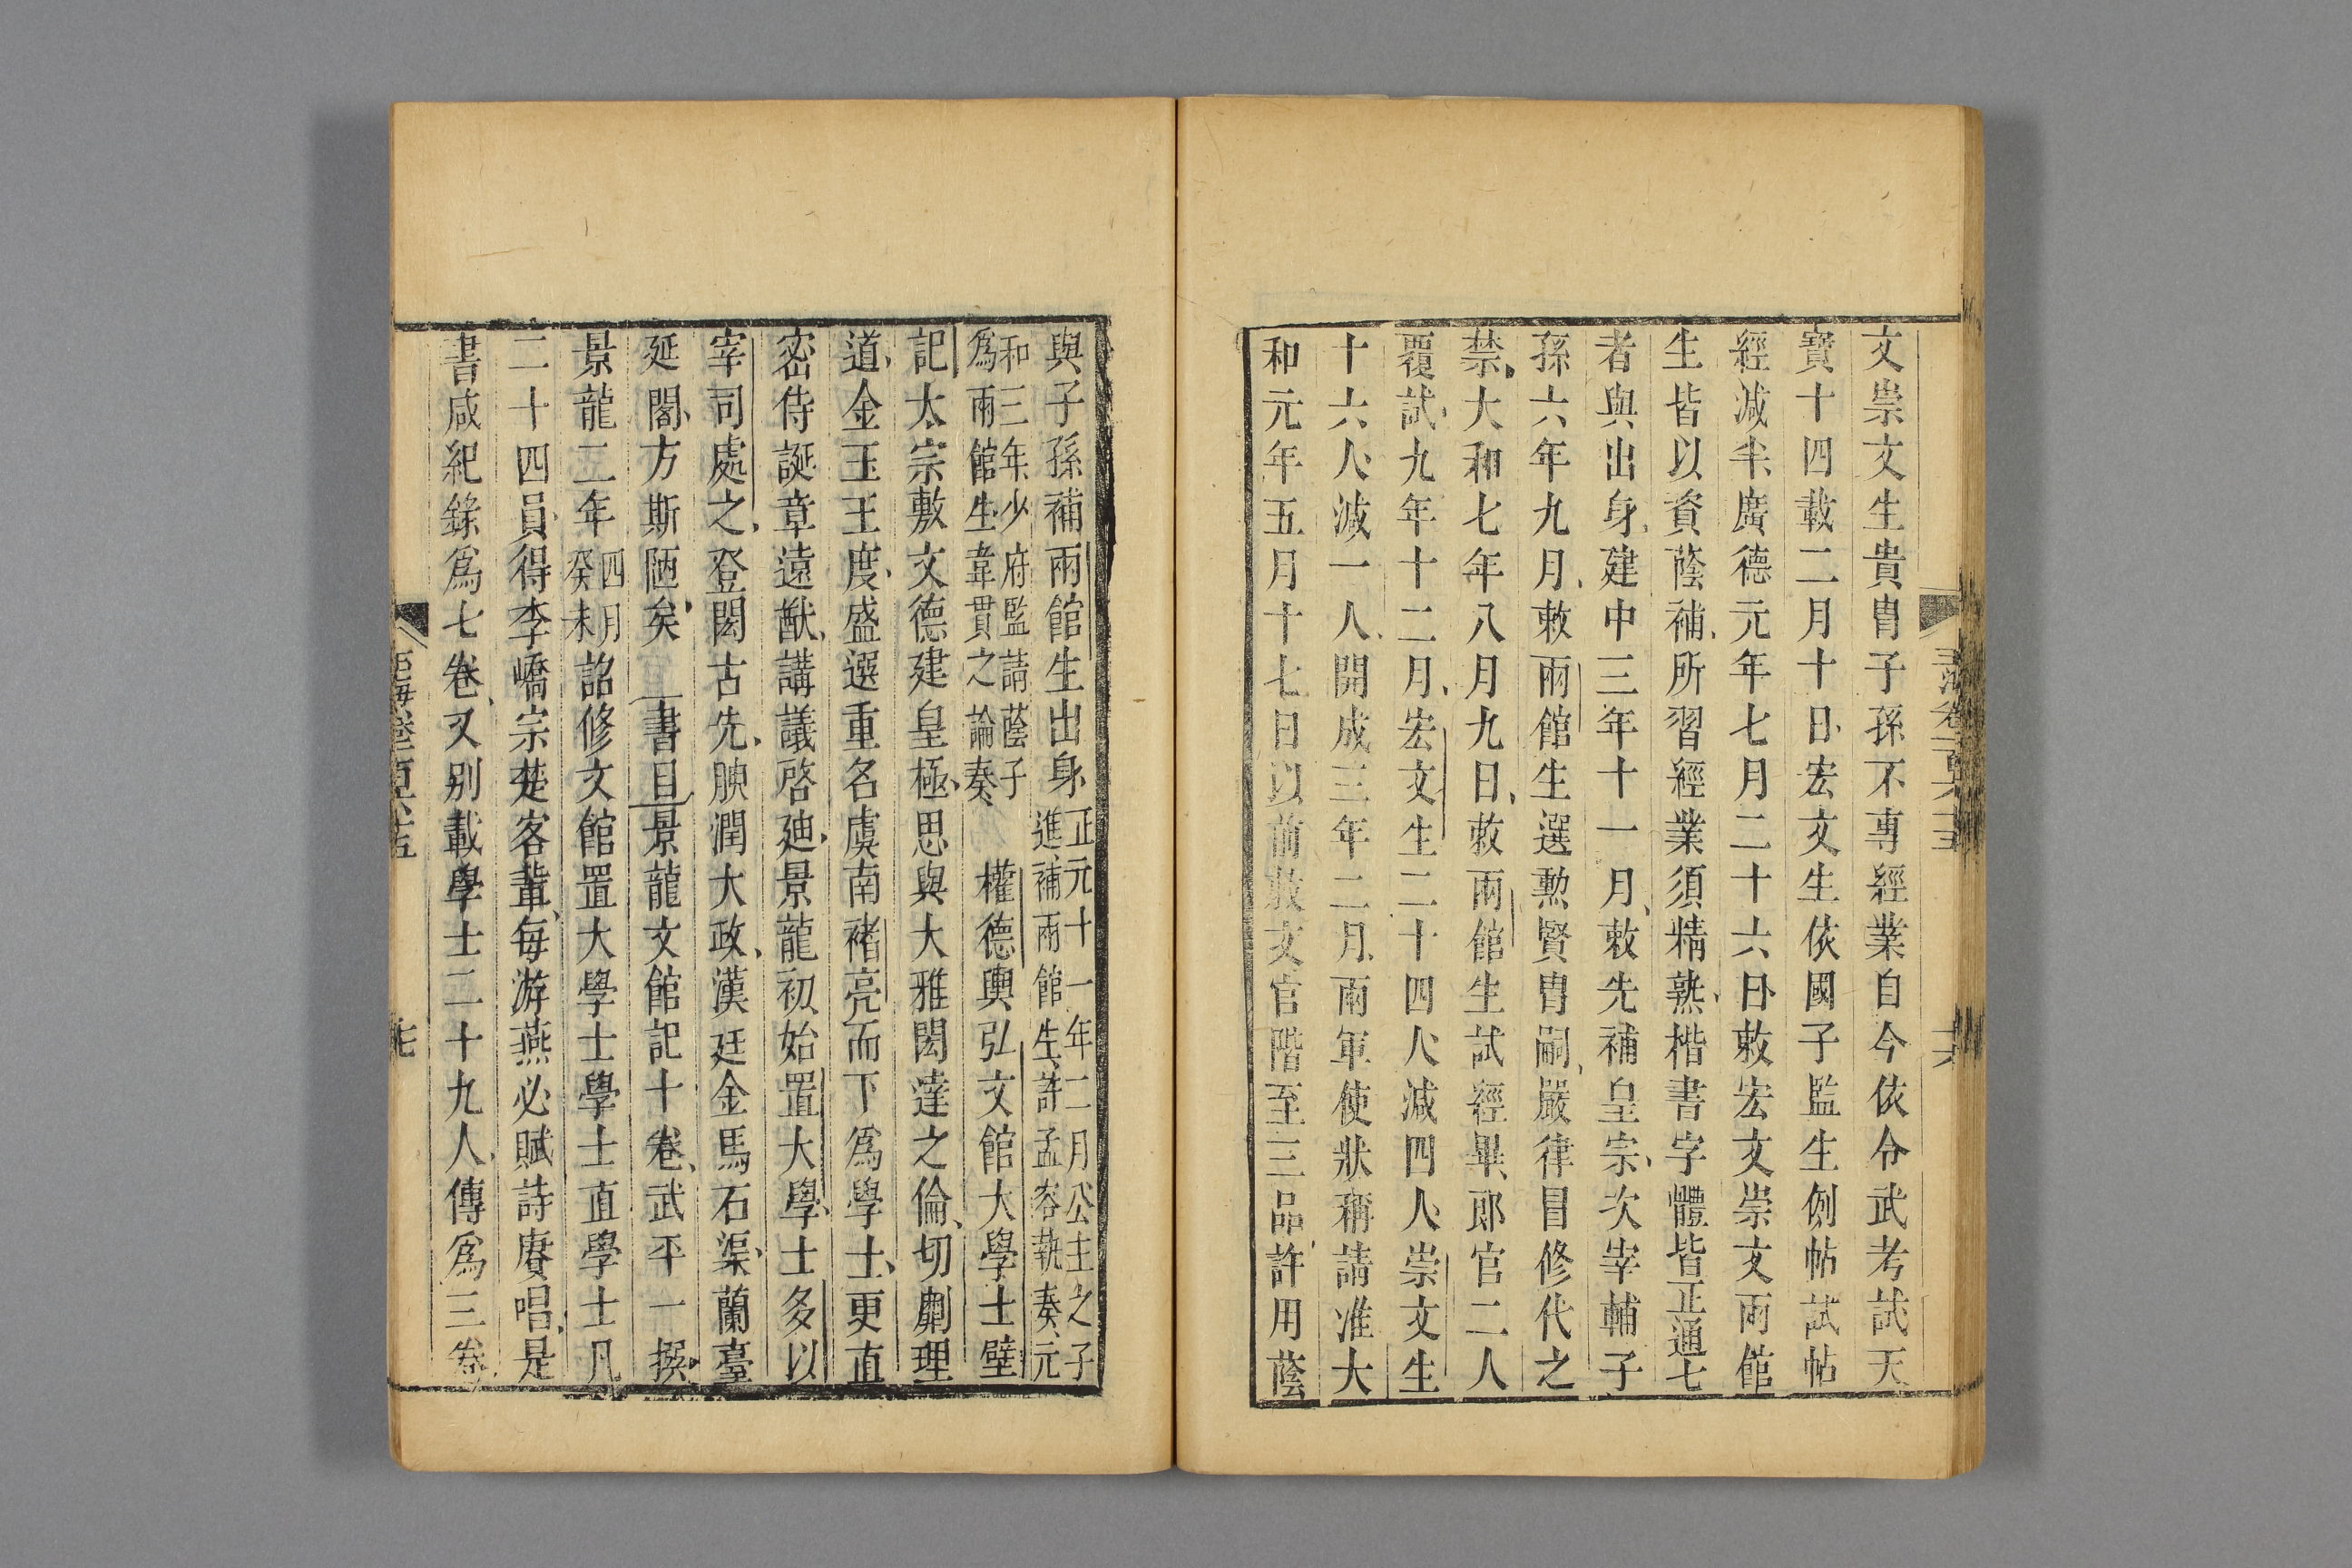 文崇文生貴胄子孫不專經業自今依令武考試天
寶十四載二月十日宏文生依國子監生例帖試帖
經減半廣德元年七月二十六日敕宏文崇文兩館
生皆以資蔭補所習經業須精熟楷書字體皆正通七
者與出身建中三年十一月敕先補皇宗次宰輔子
孫六年九月敕兩館生選勲賢胄嗣嚴律冒修代之
禁大和七年八月九日敕兩館生試經畢郎官二人
覆試九年十二月宏文生二十四人減四人崇文生
十六人減一人開成三年二月兩軍使狀稱請准大
和元年五月十七日以前敕文官階至三品許用蔭
玉海卷一百六十五
十六
與子孫補兩館生出身正元十一年二月公主之子
進補兩館生許孟容執奏元
和三年少府監請蔭子
爲兩館生韋貫之論奏 權德輿弘文館大學士壁
記太宗敷文德建皇極思與大雅閎達之倫切劘理
道金玉王度盛選重名虞南褚亮而下爲學士更直
密侍誕章遠猷講議啓廸景龍初始置大學士多以
宰司處之登閎古先腴潤大政漢廷金馬石渠蘭臺
延閣方斯陋矣 書目景龍文館記十卷武平一撰
景龍二年四月癸未詔修文館置大學士學士直學士凡
二十四員得李嶠宗楚客輩每游燕必賦詩賡唱是
書咸紀錄爲七卷又别載學士二十九人傳爲三卷
玉海卷一百六十五
十七